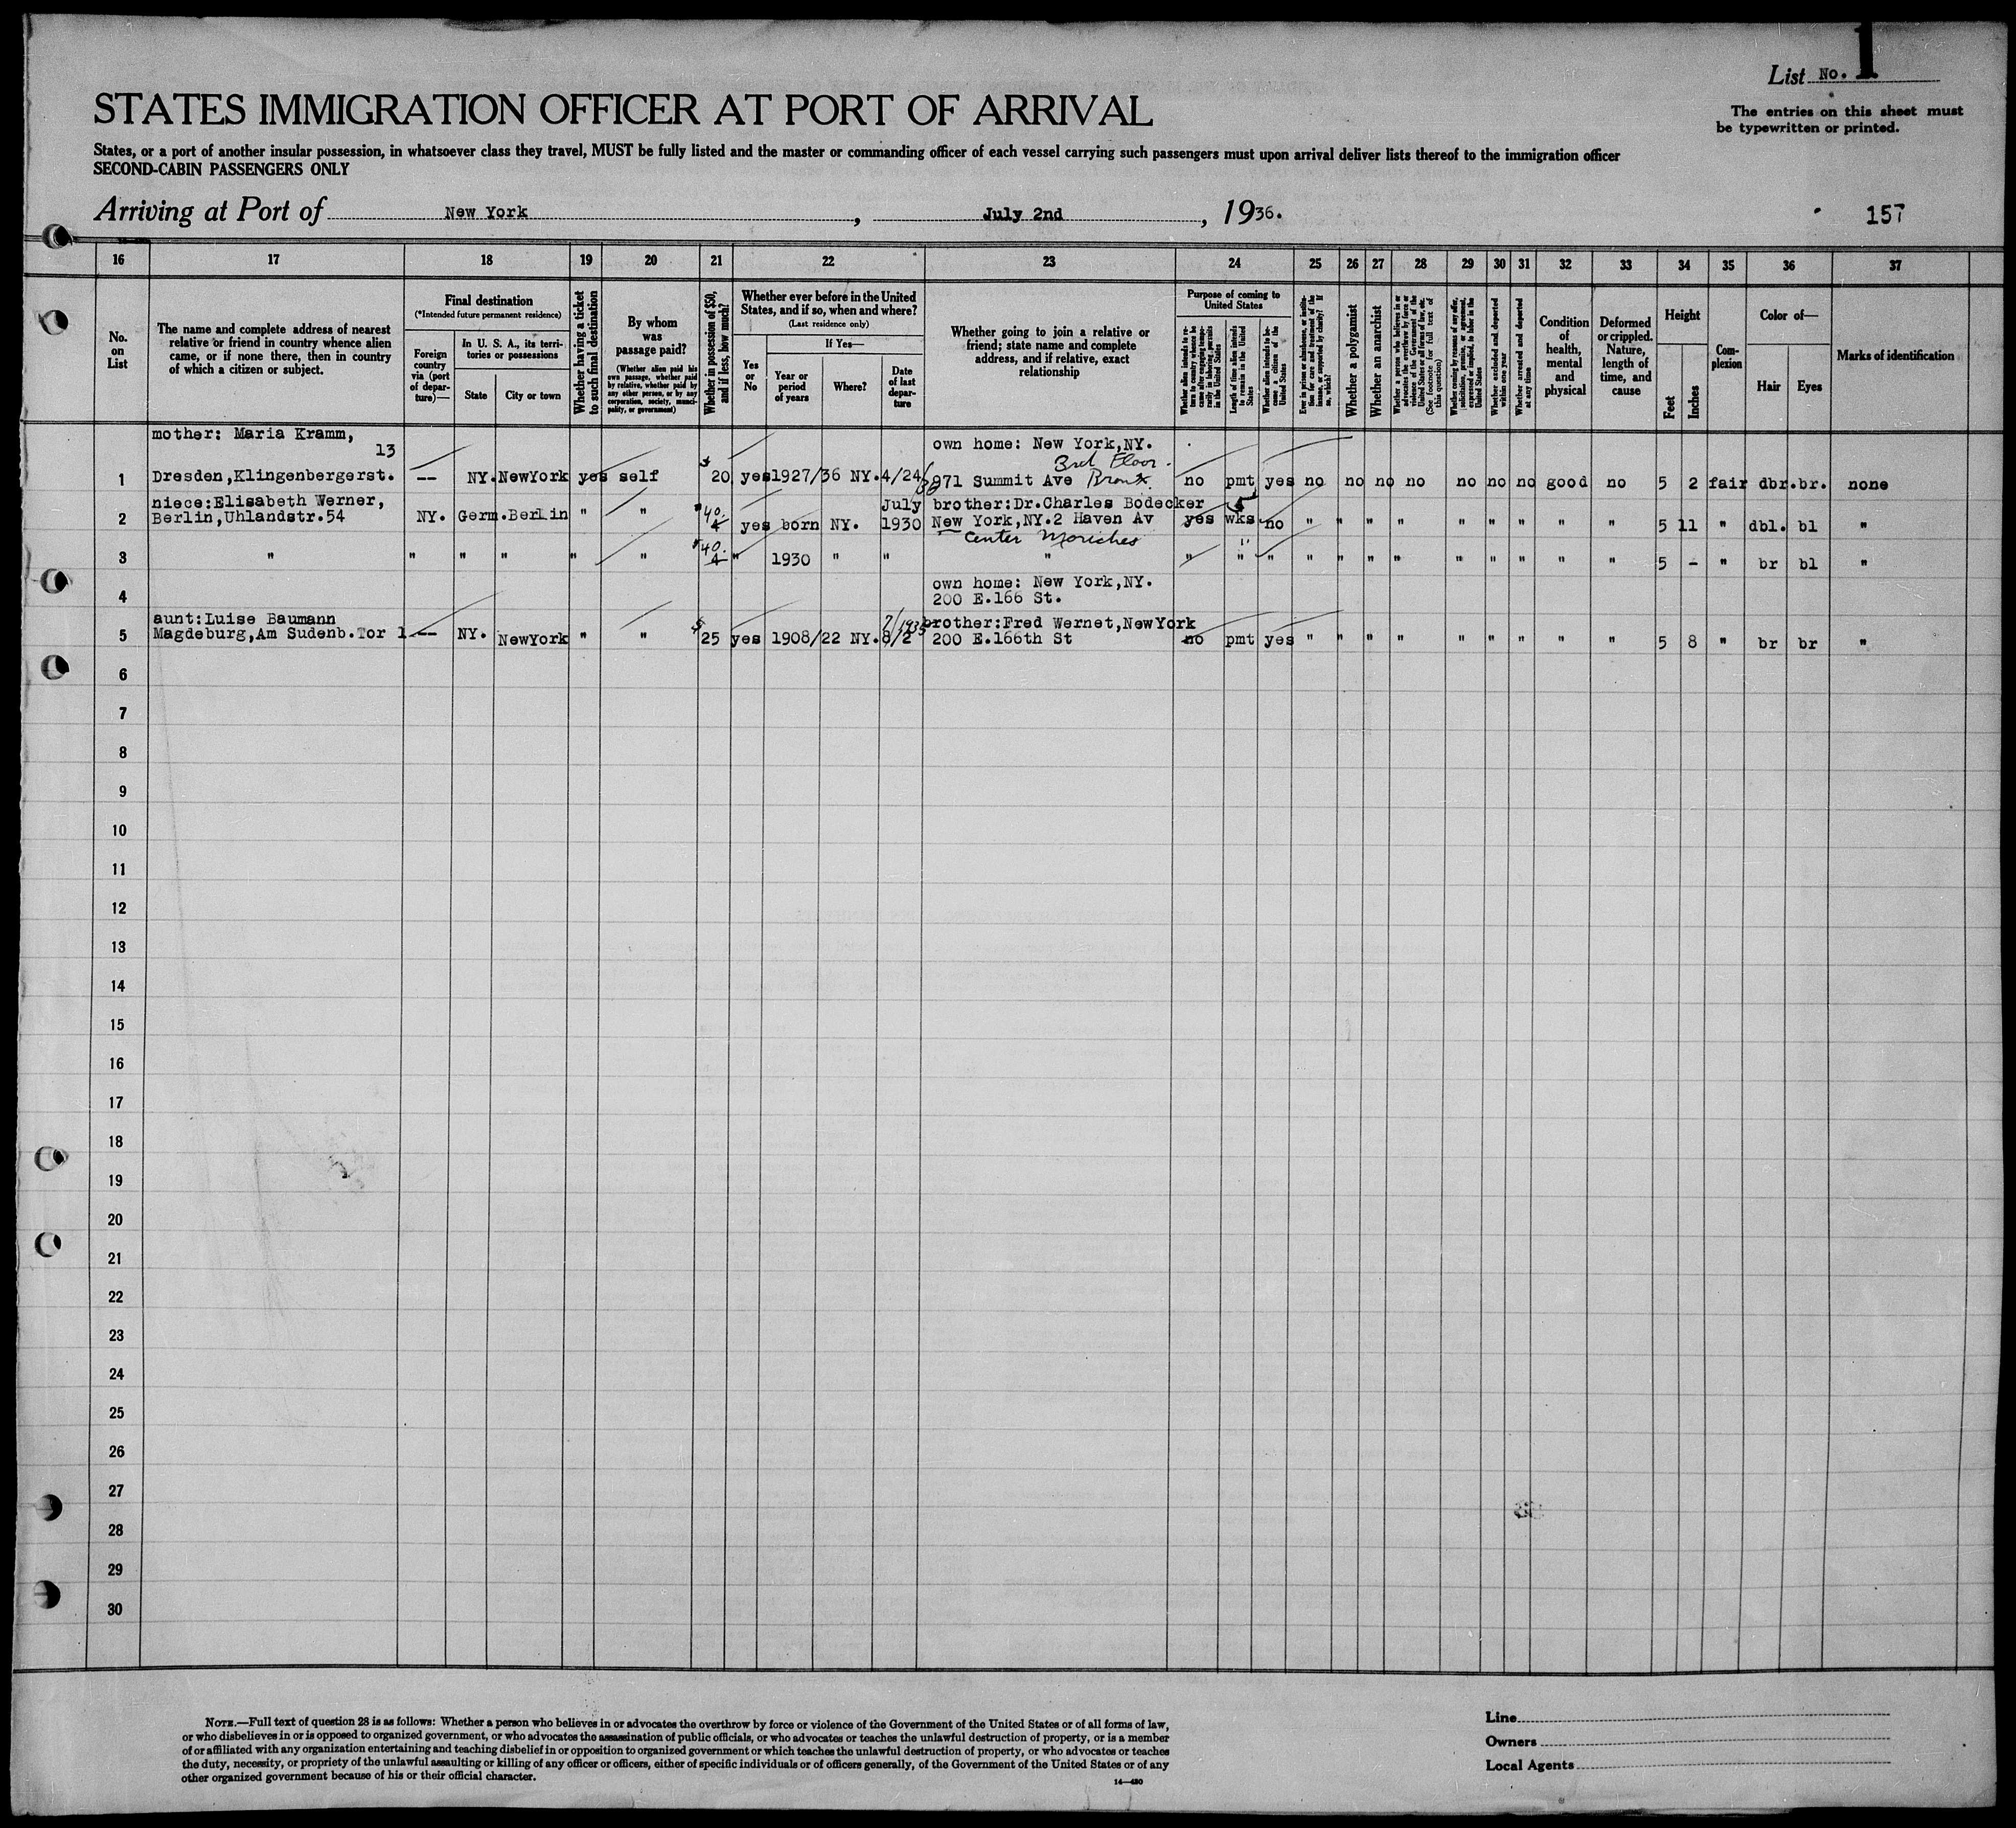 List No. 1
STATES IMMIGRATION OFFICER AT PORT OF ARRIVAL
The entries on this sheet must
be typewritten or printed.
States, or a port of another insular possession, in whatsoever class they travel, MUST be fully listed and the master or commanding officer of each vessel carrying such passengers must upon arrival deliver lists thereof to the immigration officer
SECOND-CABIN PASSENGERS ONLY
Arriving at Port of New York, July 2nd, 1936.
157
16 17 18 19 20 21 22 23 24 25 26 27 28 29 30 31 32 33 34 35 36 37
No.
on
List
The name and complete address of nearest
relative or friend in country whence alien
came, or if none there, then in country
of which a citizen or subject.
Final destination
(*Intended future permanent residence)
Foreign
country
via (port
of depar-
ture)—
In U. S. A., its terri-
tories or possessions
State
City or town
Whether having a ticket
to such final destination
By whom
was
passage paid?
(Whether alien paid his
own passage, whether paid
by relative, whether paid by
any other person, or by any
corporation, society, munici-
pality, or government)
Whether in possession of $50,
and if less, how much?
Whether ever before in the United
States, and if so, when and where?
(Last residence only)
Yes
or
No
If Yes—
Year or
period
of years
Where?
Date
of last
depar-
ture
Whether going to join a relative or
friend; state name and complete
address, and if relative, exact
relationship
Purpose of coming to
United States
Whether alien intends to re-
turn to country whence he
came after engaging tempo-
rarily in laboring pursuits
in the United States
Length of time alien intends
to remain in the United
States
Whether alien intends to be-
come a citizen of the
United States
Ever in prison or almshouse, or institu-
tion for care and treatment of the
insane, or supported by charity? If
so, which?
Whether a polygamist
Whether an anarchist
Whether a person who believes in or
advocates the overthrow by force or
violence of the Government of the
United States or all forms of law, etc.
(See footnote for full text of
this question)
Whether coming by reason of any offer,
solicitation, promise, or agreement,
expressed or implied, to labor in the
United States
Whether excluded and deported
within one year
Whether arrested and deported
at any time
Condition
of
health,
mental
and
physical
Deformed
or crippled.
Nature,
length of
time, and
cause
Height
Feet
Inches
Com-
plexion
Color of—
Hair
Eyes
Marks of identification
mother: Maria Kramm, own home: New York,NY.
13 3rd Floor.
1 Dresden,Klingenbergerst. -- NY. NewYork yes self $ 20 yes 1927/36 NY. 4/24/ 971 Summit Ave Bronx. no pmt yes no no no no no no no good no 5 2 fair dbr. br. none
niece:Elisabeth Werner, July brother:Dr.Charles Bodecker
2 Berlin,Uhlandstr.54 NY. Germ.Berlin " " $40. yes born NY. 1930 New York,NY.2 Haven Av yes wks no " " " " " " " " " 5 11 " dbl. bl "
Center Moriches
3 " " " " " " $40. " 1930 " " " " " " " " " " " " " " " 5 - " br bl "
own home: New York,NY.
4 200 E.166 St.
aunt:Luise Baumann 7/1935 brother:Fred Wernet,NewYork
5 Magdeburg,Am Sudenb.Tor 1 -- NY. NewYork " " $ 25 yes 1908/22 NY. 8/2 200 E.166th St no pmt yes " " " " " " " " " 5 8 " br br "
6
7
8
9
10
11
12
13
14
15
16
17
18
19
20
21
22
23
24
25
26
27
28
29
30
NOTE.—Full text of question 28 is as follows: Whether a person who believes in or advocates the overthrow by force or violence of the Government of the United States or of all forms of law,
or who disbelieves in or is opposed to organized government, or who advocates the assassination of public officials, or who advocates or teaches the unlawful destruction of property, or is a member
of or affiliated with any organization entertaining and teaching disbelief in or opposition to organized government or which teaches the unlawful destruction of property, or who advocates or teaches
the duty, necessity, or propriety of the unlawful assaulting or killing of any officer or officers, either of specific individuals or of officers generally, of the Government of the United States or of any
other organized government because of his or their official character.
14—480
Line
Owners
Local Agents